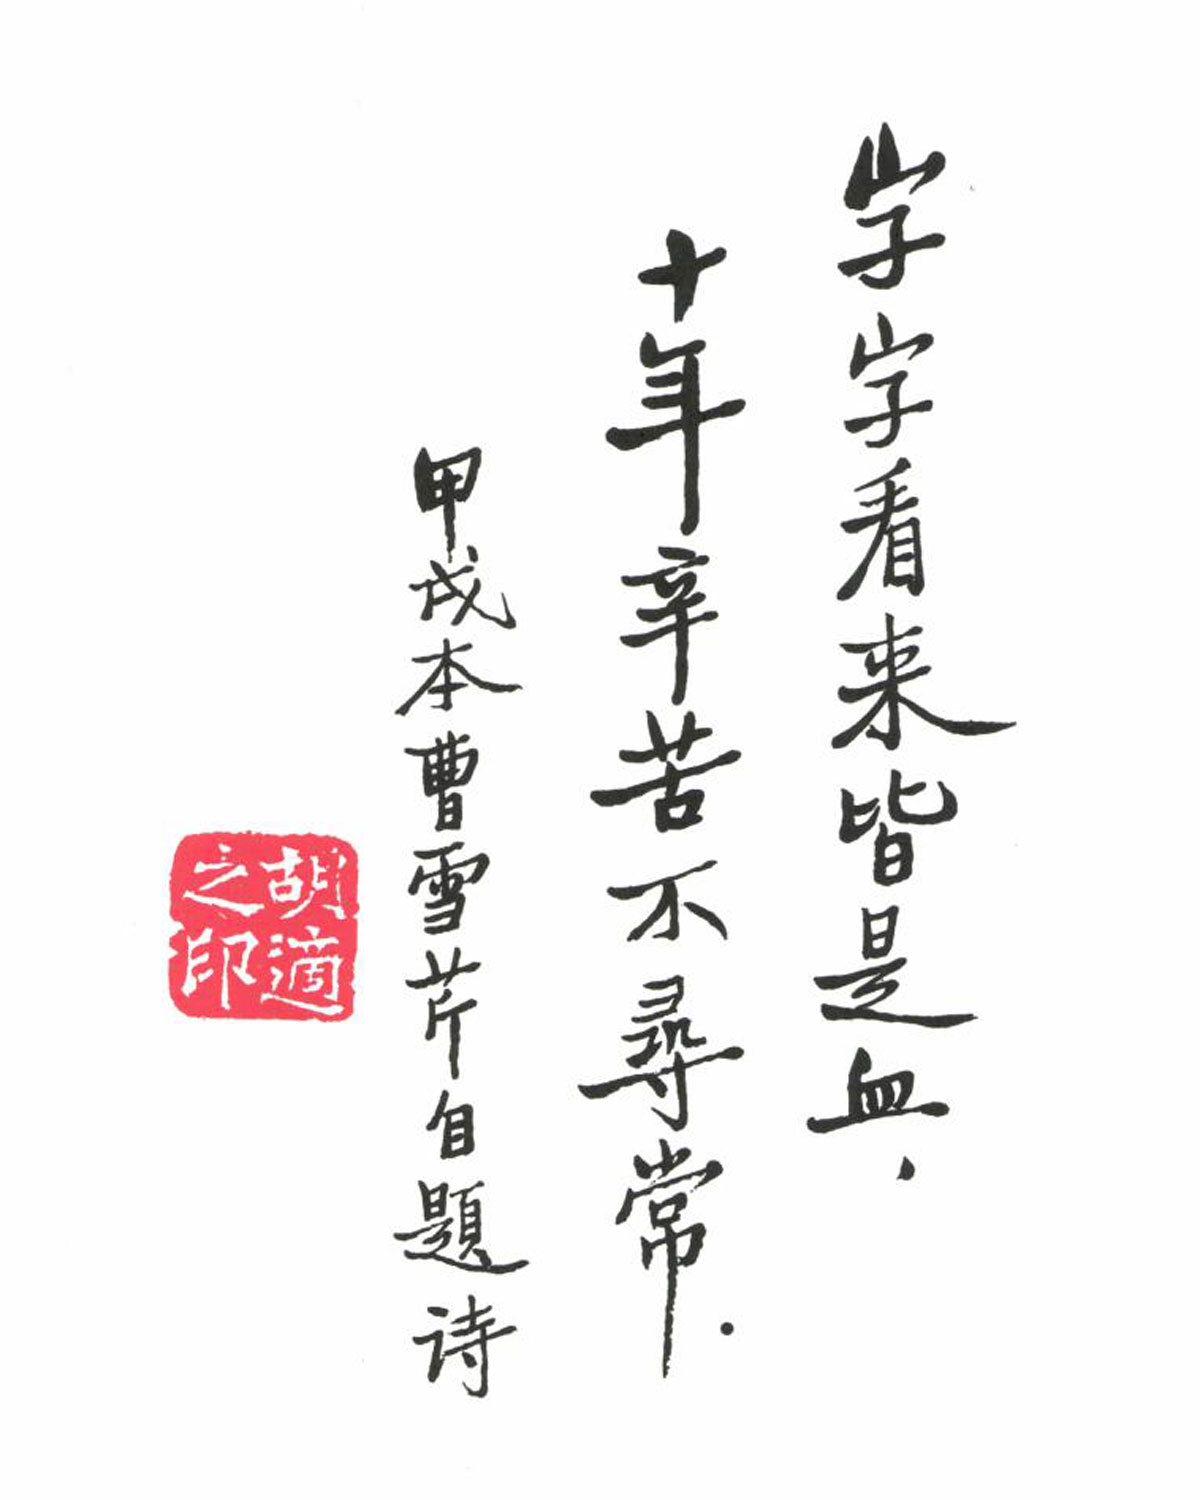 字字看来皆是血,
十年辛苦不尋常.
甲戌本曹雪芹自題诗
胡適之印